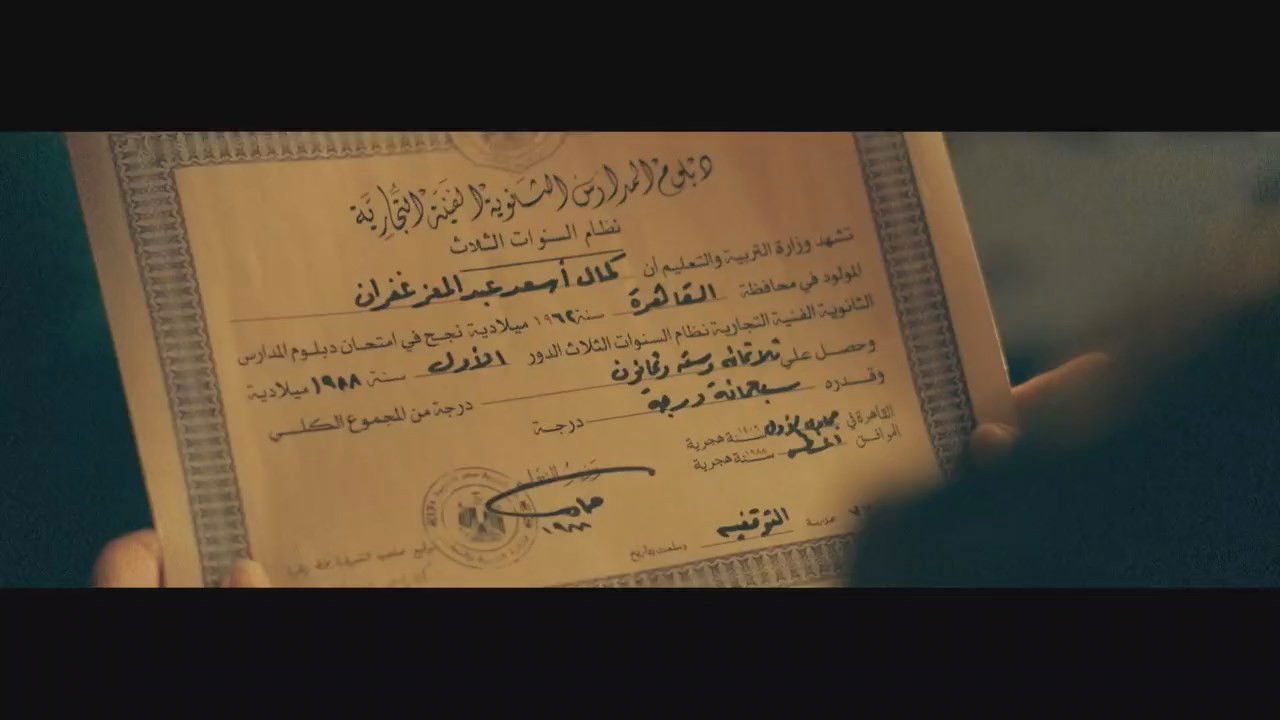 دبلوم المدارس الثانوية الفنية التجارية
نظام السنوات الثلاث
تشهد وزارة التربية والتعليم أن كمال أسعد عبد المعز غفران
المولود في محافظة القاهرة سنة ١٩٦٢ ميلادية نجح في امتحان دبلوم المدارس
الثانوية الفنية التجارية نظام السنوات الثلاث الدور الأول سنة ١٩٨٨ ميلادية
وحصل على ثلاثمائه وسته وثمانون درجة من المجموع الكلي
وقدره سبعمائة درجة درجة
القاهرة في جمادى الأول سنة هجرية
الموافق سنة ١٩٨٨ هجرية
وزير التعليم
١٩٨٨
مدرسة التوفيقيه
وسلمت بتاريخ